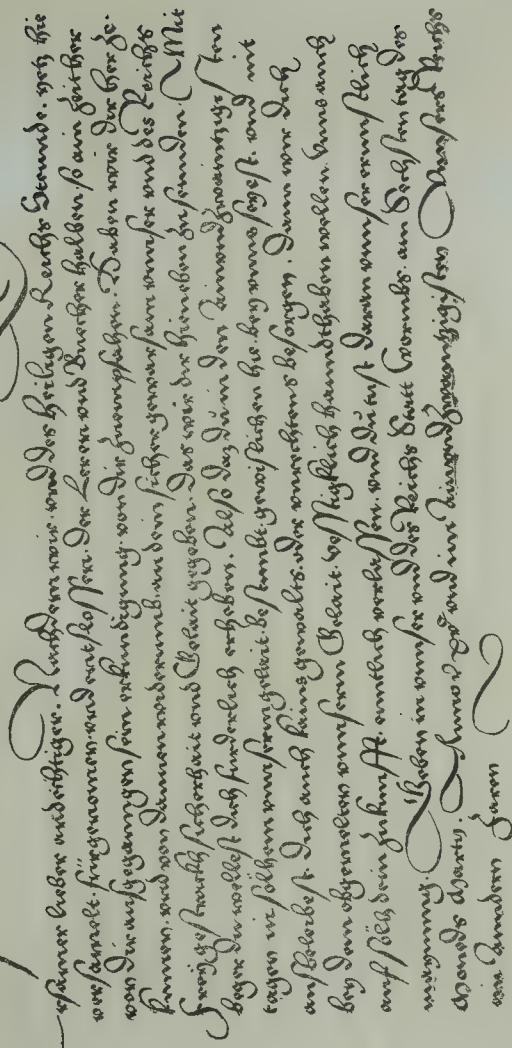 ersamer lieber andechtiger. Nachdem wir vnd des heiligen Reichs Stennde. yetz hie
versamelt. fürgenomen vnd entslossen. der Leren vnd Buecher halben. so ain zeither
von dir ausgegangen sein erkundigung von dir zuempfahen. Haben wir dir her ze-
kumen. vnd von dannen widerumb an dein sicher gewarsam vnnser vnd des Reichs
frey gestrackh sicherhait vnd Gelait gegeben. das wir dir hieneben zusenden. Mit
beger du wellest dich furderlich erheben. Also daz du in den ainvndzwaintzigisten
tagen in sölhem vnnserm gelait bestimbt gewislichen hie bey vnns seyest. vnd nit
aussbeleibest. Dich auch kains gewalts. oder vnrechtens besorgen. Dann wir dich
bey dem obgemelten vnnserm Gelait vestigklich hanndthaben wellen. Vnns auch
auf sölh dein zukunfft. enntlich verlassen. vnd du tust daran vnnser ernnstlich
maynung. Geben in vnnser vnd des Reichs Statt Wormbs. am Sechsten tag des
Monads Marty. Anno vnd im Ainvndzwaintzigisten Vnnsers Reichs
im Anndern Jarn